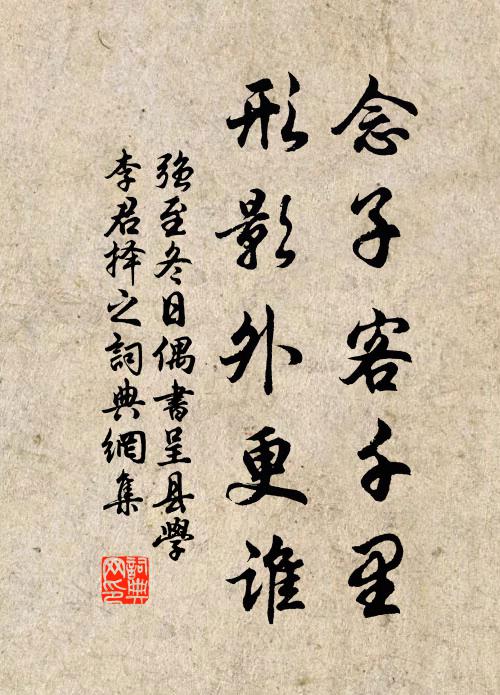 念子客千里
形影外更谁
强至冬日偶書呈县學
李君择之詞典網集
詞典
网印